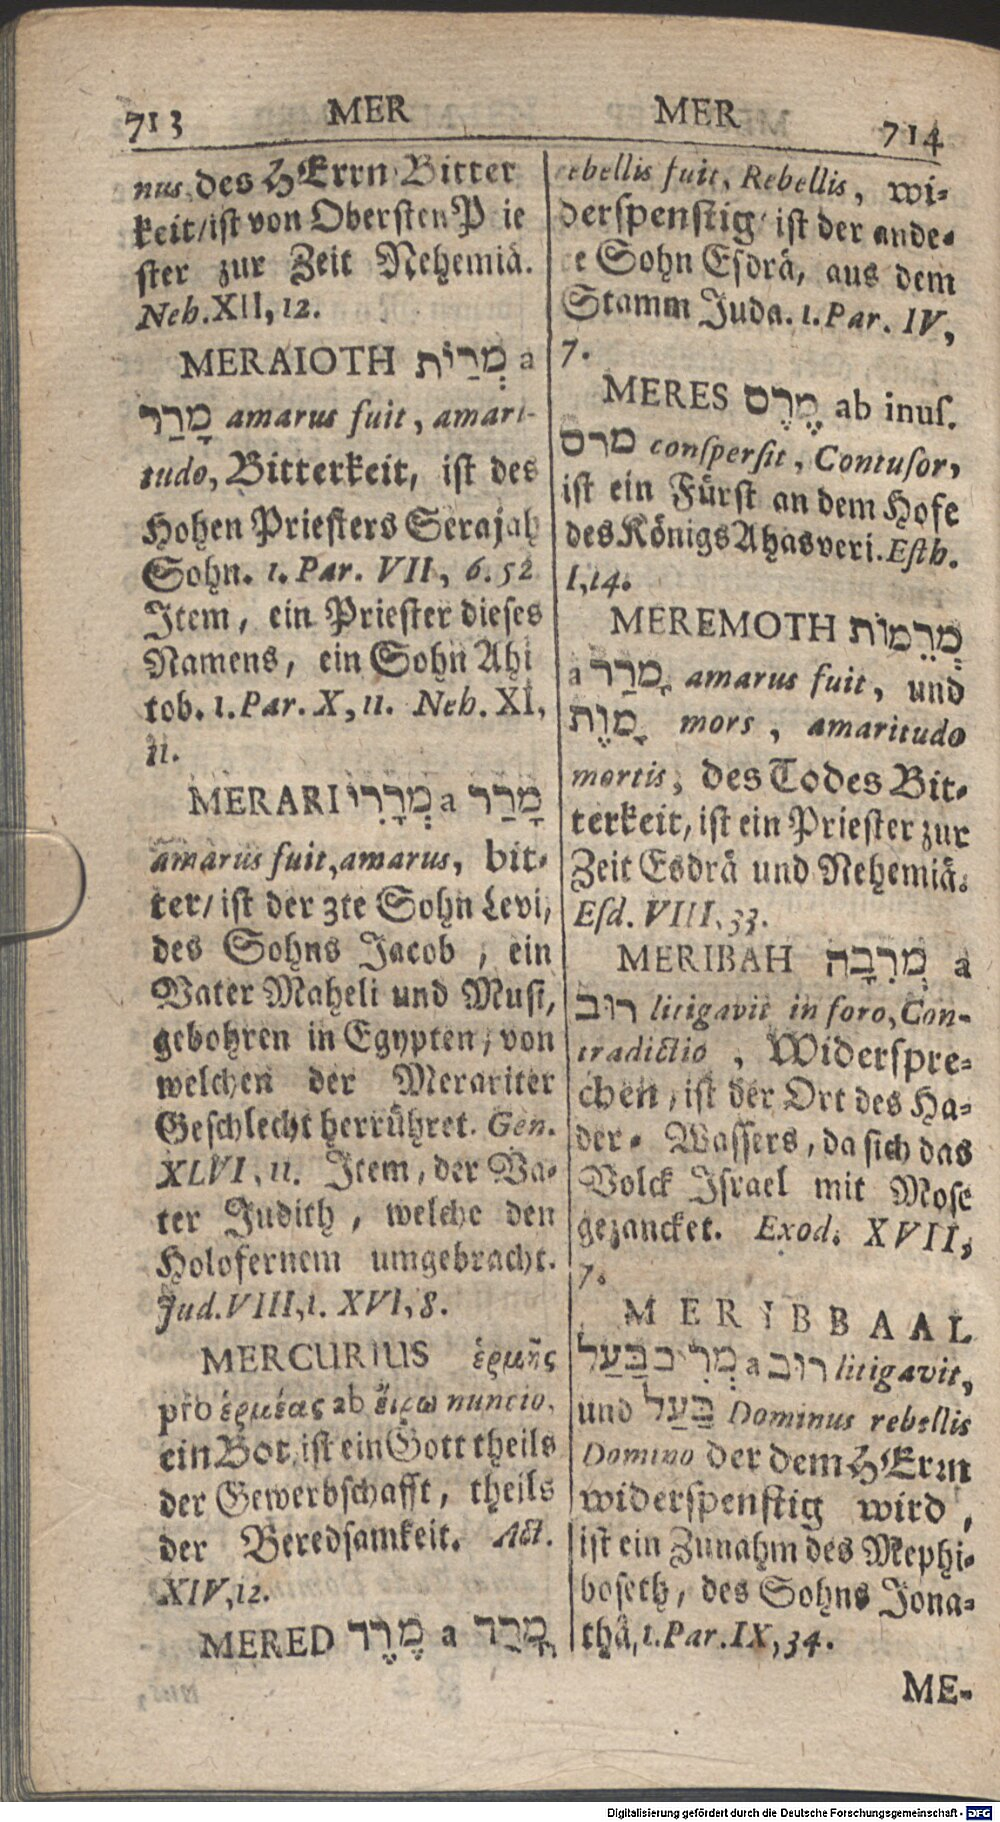 713 MER
MER 714
nus, des HErrn Bitter
keit/ ist von Obersten P ie
ster zur Zeit Nehemiä.
Neh. XII, 12.
MERAIOTH מְרַיֹת a
מָרַר amarus fuit, amari-
tudo, Bitterkeit, ist des
Hohen Priesters Serajah
Sohn. 1. Par. VII, 6. 52
Item, ein Priester dieses
Namens, ein Sohn Ahi
tob. 1. Par. X, 11. Neh. XI,
11.
MERARI מְרָרִי a מָרַר
amarus fuit, amarus, bit-
ter/ ist der 3te Sohn Levi,
des Sohns Jacob, ein
Vater Maheli und Musi,
gebohren in Egypten, von
welchen der Merariter
Geschlecht herrühret. Gen.
XLVI, 11. Item, der Va-
ter Judith, welche den
Holofernem umgebracht.
Jud. VIII, 1. XVI, 8.
MERCURIUS ἑρμῆς
pro ἑρμέας ab ἔιρω nuncio,
ein Bot, ist ein Gott theils
der Gewerbschafft, theils
der Beredsamkeit. Act.
XIV, 12.
MERED מֶרֶד a מָרַד
rebellis fuit, Rebellis, wi-
derspenstig/ ist der ande-
e Sohn Esdrä, aus dem
Stamm Juda. 1. Par. IV,
7.
MERES מֶרֶס ab inus.
מרס conspersit, Contusor,
ist ein Fürst an dem Hofe
des Königs Ahasveri. Esth.
I, 14.
MEREMOTH מְרֵמוֹת
a מָרַר amarus fuit, und
מָוֶת mors, amaritudo
mortis, des Todes Bit-
terkeit, ist ein Priester zur
Zeit Esdrä und Nehemiä.
Esd. VIII, 33.
MERIBAH מְרִבָה a
רוּב litigavit in foro, Con-
tradictio, Widerspre-
chen, ist der Ort des Ha-
der-Wassers, da sich das
Volck Israel mit Mose
gezancket. Exod. XVII,
7.
MERIBBAAL
מְרִיבבַּעַל a רוּב litigavit,
und בַּעַל Dominus rebellis
Domino der dem HErrn
widerspenstig wird,
ist ein Zunahm des Mephi-
boseth, des Sohns Jona-
thä, 1. Par. IX, 34.
ME-
Digitalisierung gefördert durch die Deutsche Forschungsgemeinschaft - DFG